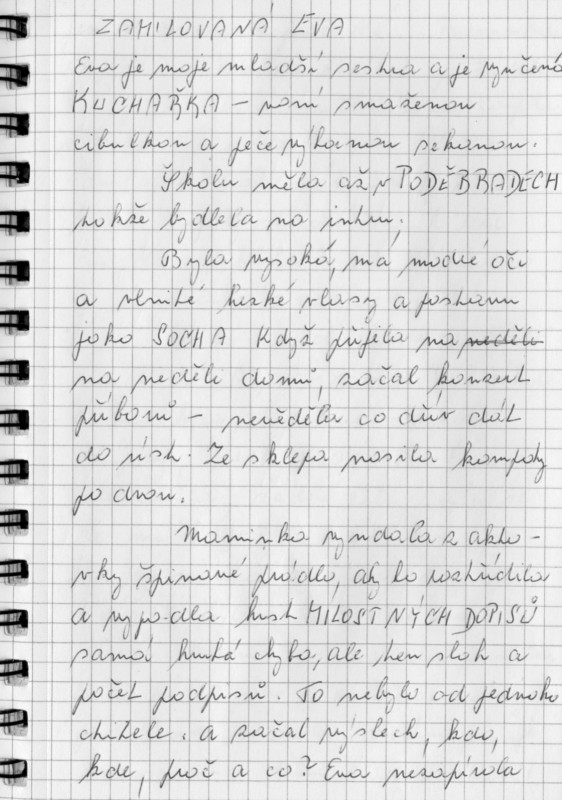 ZAMILOVANÁ EVA
Eva je moje mladší sestra a je vyučená
KUCHAŘKA – voní smaženou
cibulkou a peče výbornou sekanou.
Školu měla až v PODĚBRADECH
tokže bydlela na intru.
Byla vysoká, má modré oči
a vlnité hezké vlasy a postavu
jako SOCHA Když přijela na neděli
na neděli domů, začal koncert
příborů – nevěděla co dřív dát
do úst. Ze sklepa nosila kompoty
po dvou.
Maminka vyndala z akto-
vky špinavé prádlo, aby to roztřídila
a vypadla hrst MILOSTNÝCH DOPISŮ
samá hrubá chyba, ale ten sloh a
počet podpisů. To nebylo od jednoho
ctitele. a začal výslech, kdo,
kde, proč a co? Eva nezapírala